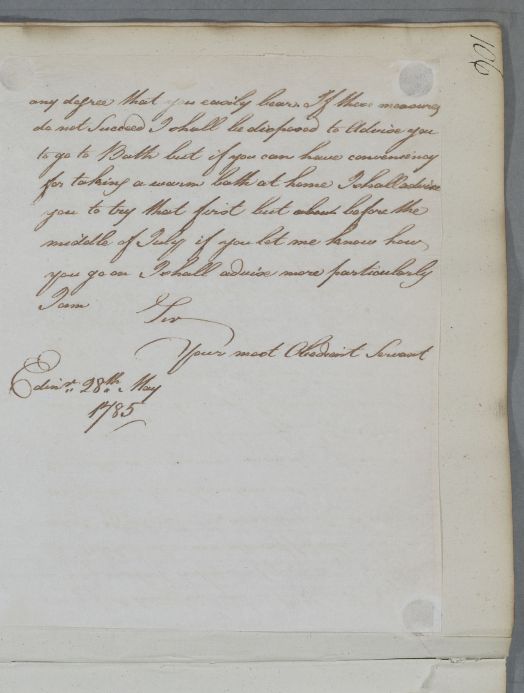 106
any degree that you easily bear. If these measures
do not Succeed I shall be disposed to Advise you
to go to Bath but if you can have conveniency
for taking a warm bath at home I shall advise
you to try that first but about before the
middle of July if you let me know how
you go on I shall advise more particularly
I am Sir
Your most Obedient Servant
Edinr. 28th. May
1785